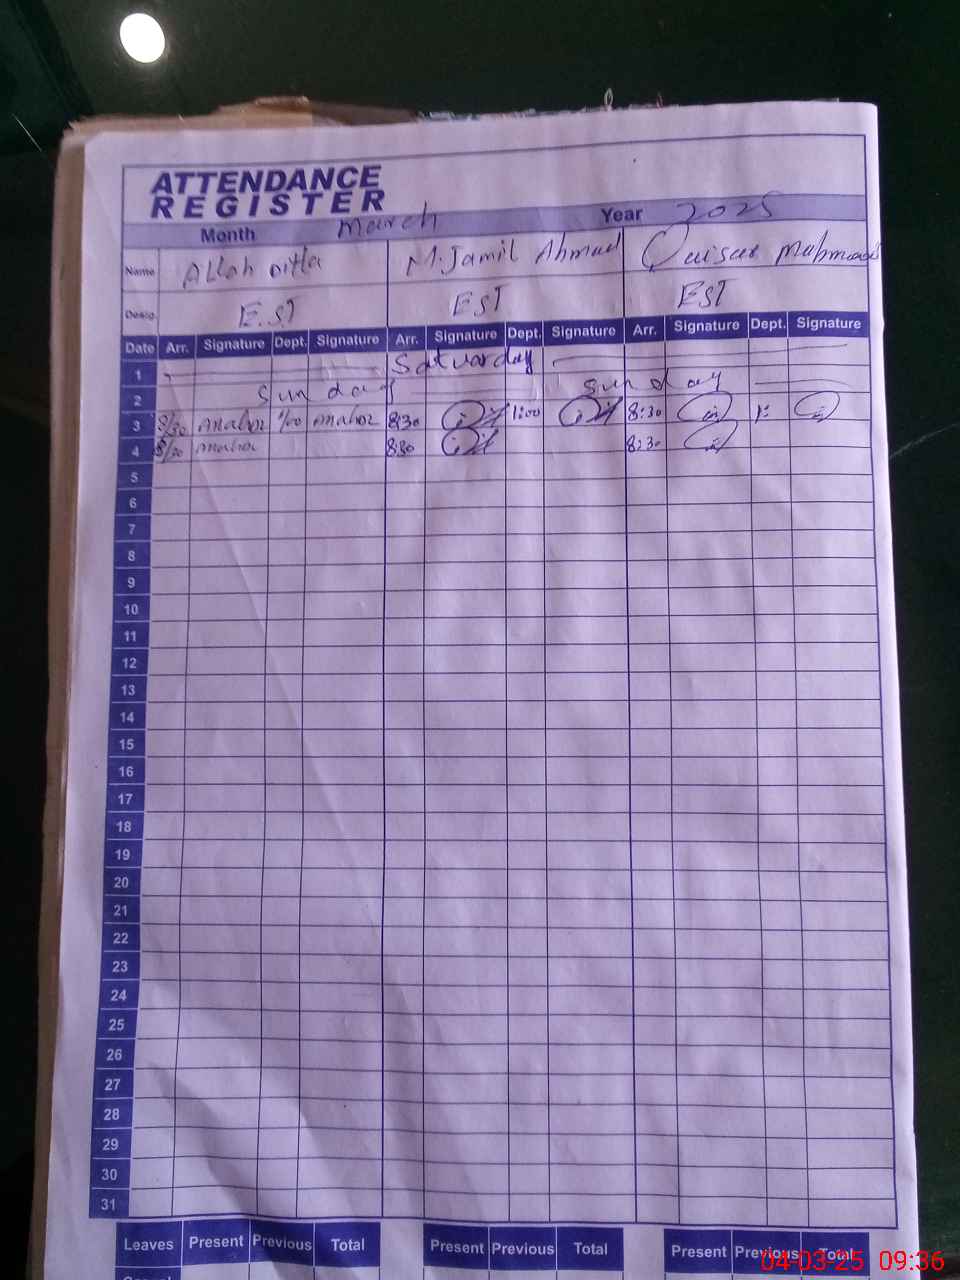 ATTENDANCE
REGISTER
Month March Year 2025
Name Allah Ditta M. Jamil Ahmad Qaisar Mahmood
Desig. E.ST EST EST
Date Arr. Signature Dept. Signature Arr. Signature Dept. Signature Arr. Signature Dept. Signature
1 Saturday
2 Sunday Sunday
3 8/30 1/00 8:30 1:00 8:30 1:
4 8/30 8:30 8:30
5
6
7
8
9
10
11
12
13
14
15
16
17
18
19
20
21
22
23
24
25
26
27
28
29
30
31
Leaves Present Previous Total Present Previous Total Present Previous Total
04-03-25 09:36